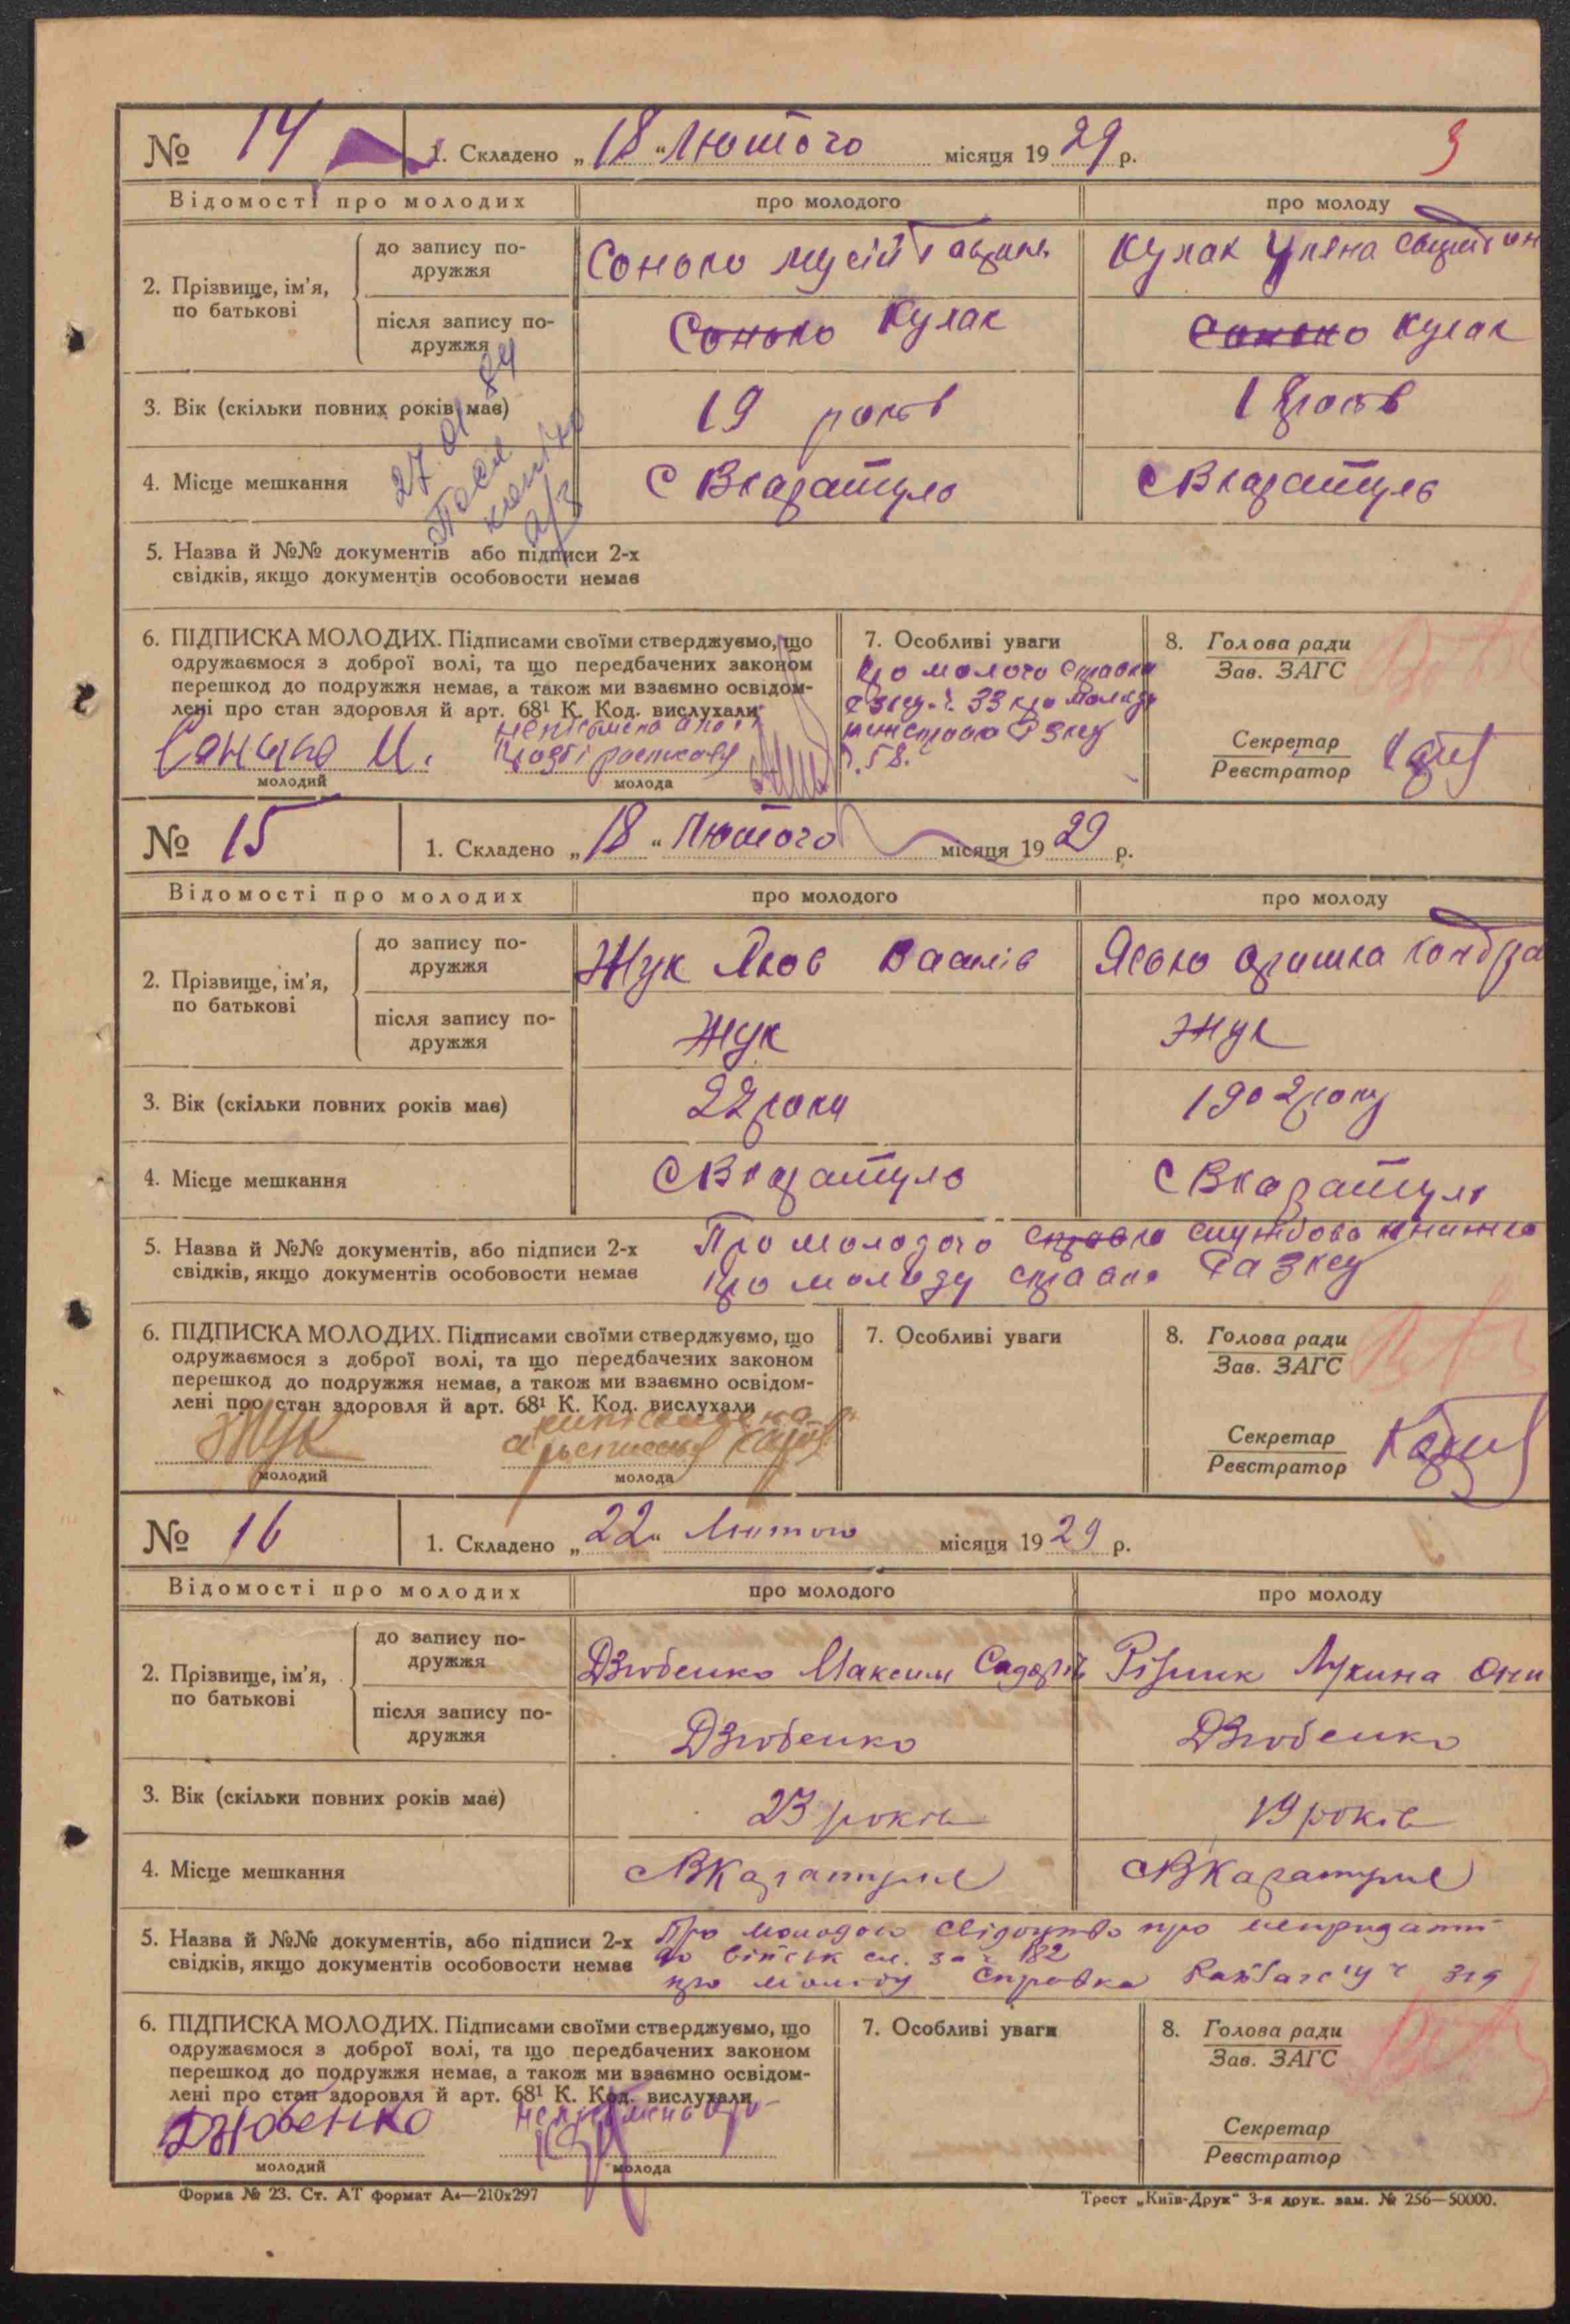 № 14 1. Складено „18“ Лютого місяця 1929 р. 3
Відомості про молодих про молодого про молоду
2. Прізвище, ім'я, по батькові
до запису по-
дружжя
Соноко Мусій Кулак Уляна
після запису по-
дружжя
Соноко Кулак Соноко Кулак
3. Вік (скільки повних років має) 19 років 18 років
27.01.84
4. Місце мешкання с Вкаратуло с Вкаратуло
5. Назва й №№ документів або підписи 2-х
свідків, якщо документів особовости немає
6. ПІДПИСКА МОЛОДИХ. Підписами своїми стверджуємо, що
одружаємося з доброї волі, та що передбачених законом
перешкод до подружжя немає, а також ми взаємно освідом-
лені про стан здоровля й арт. 68¹ К. Код. вислухали
неписьмена
молодий молода
7. Особливі уваги
про молого справка
33 про молоду
58.
8. Голова ради
Зав. ЗАГС
Секретар
Реєстратор
№ 15 1. Складено „18“ Лютого місяця 1929 р.
Відомості про молодих про молодого про молоду
2. Прізвище, ім'я, по батькові
до запису по-
дружжя
Жук Яков Василів Оришка Кондра
після запису по-
дружжя
Жук Жук
3. Вік (скільки повних років має) 22 роки 1902 року
4. Місце мешкання с Вкаратуло с Вкаратуло
5. Назва й №№ документів, або підписи 2-х
свідків, якщо документів особовости немає
Про молодого справка службова книжка
про молоду справка
6. ПІДПИСКА МОЛОДИХ. Підписами своїми стверджуємо, що
одружаємося з доброї волі, та що передбачених законом
перешкод до подружжя немає, а також ми взаємно освідом-
лені про стан здоровля й арт. 68¹ К. Код. вислухали
Жук
молодий молода
7. Особливі уваги
8. Голова ради
Зав. ЗАГС
Секретар
Реєстратор
№ 16 1. Складено „22“ Лютого місяця 1929 р.
Відомості про молодих про молодого про молоду
2. Прізвище, ім'я, по батькові
до запису по-
дружжя
Дзюбенко Максим Сидорів Різник Лукина Они
після запису по-
дружжя
Дзюбенко Дзюбенко
3. Вік (скільки повних років має) 23 років 19 років
4. Місце мешкання с ВКаратуле с ВКаратуле
5. Назва й №№ документів, або підписи 2-х
свідків, якщо документів особовости немає
Про молодого свідоцтво про непридатн
до військ сл. за ч 182
про молоду справка ч 319
6. ПІДПИСКА МОЛОДИХ. Підписами своїми стверджуємо, що
одружаємося з доброї волі, та що передбачених законом
перешкод до подружжя немає, а також ми взаємно освідом-
лені про стан здоровля й арт. 68¹ К. Код. вислухали
Дзюбенко неписьмена
молодий молода
7. Особливі уваги
8. Голова ради
Зав. ЗАГС
Секретар
Реєстратор
Форма № 23. Ст. АТ формат А₄—210х297 Трест „Київ-Друк“ 3-я друк. зам. № 256—50000.